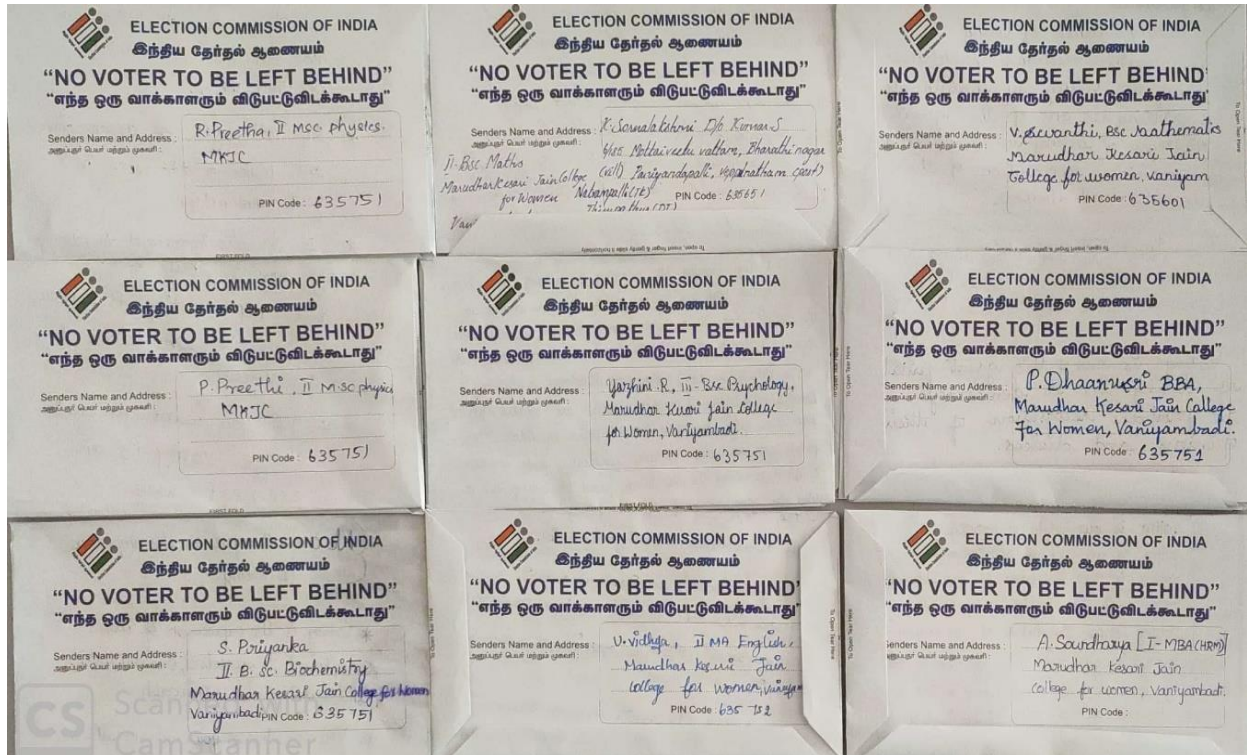 ELECTION COMMISSION OF INDIA
இந்திய தேர்தல் ஆணையம்
“NO VOTER TO BE LEFT BEHIND”
“எந்த ஒரு வாக்காளரும் விடுபட்டுவிடக்கூடாது”
Senders Name and Address :
அனுப்புநர் பெயர் மற்றும் முகவரி :
R. Preetha, II Msc. physics.
MKJC
PIN Code : 635751
ELECTION COMMISSION OF INDIA
இந்திய தேர்தல் ஆணையம்
“NO VOTER TO BE LEFT BEHIND”
“எந்த ஒரு வாக்காளரும் விடுபட்டுவிடக்கூடாது”
Senders Name and Address :
அனுப்புநர் பெயர் மற்றும் முகவரி :
K. Sornalakshmi D/o Kumar.S
Mottaiveetu vattam, Bharathi nagar
II- Bsc Maths
Marudhar Kesari Jain College (vill)
for Women
PIN Code : 635651
To Open Tear Here
ELECTION COMMISSION OF INDIA
இந்திய தேர்தல் ஆணையம்
“NO VOTER TO BE LEFT BEHIND”
“எந்த ஒரு வாக்காளரும் விடுபட்டுவிடக்கூடாது”
Senders Name and Address :
அனுப்புநர் பெயர் மற்றும் முகவரி :
V. Sevanthi, Bsc Maathematis
Marudhar Kesari Jain
College for women, vaniyam
PIN Code : 635601
To Open Tear Here
ELECTION COMMISSION OF INDIA
இந்திய தேர்தல் ஆணையம்
“NO VOTER TO BE LEFT BEHIND”
“எந்த ஒரு வாக்காளரும் விடுபட்டுவிடக்கூடாது”
Senders Name and Address :
அனுப்புநர் பெயர் மற்றும் முகவரி :
P. Preethi, II M.sc physics
MKJC
PIN Code : 635751
ELECTION COMMISSION OF INDIA
இந்திய தேர்தல் ஆணையம்
“NO VOTER TO BE LEFT BEHIND”
“எந்த ஒரு வாக்காளரும் விடுபட்டுவிடக்கூடாது”
Senders Name and Address :
அனுப்புநர் பெயர் மற்றும் முகவரி :
Yazhini. R, III- Bsc Psychology,
Marudhar Kesari Jain College
for Women, Vaniyambadi.
PIN Code : 635751
To Open Tear Here
ELECTION COMMISSION OF INDIA
இந்திய தேர்தல் ஆணையம்
“NO VOTER TO BE LEFT BEHIND”
“எந்த ஒரு வாக்காளரும் விடுபட்டுவிடக்கூடாது”
Senders Name and Address :
அனுப்புநர் பெயர் மற்றும் முகவரி :
P. Dhaanusri BBA,
Marudhar Kesari Jain College
For Women, Vaniyambadi.
PIN Code : 635751
ELECTION COMMISSION OF INDIA
இந்திய தேர்தல் ஆணையம்
“NO VOTER TO BE LEFT BEHIND”
“எந்த ஒரு வாக்காளரும் விடுபட்டுவிடக்கூடாது”
Senders Name and Address :
அனுப்புநர் பெயர் மற்றும் முகவரி :
S. Priyanka
II. B. Sc. Biochemistry
Marudhar Kesari Jain College for Women
Vaniyambadi PIN Code : 635751
CS Scanned with
CamScanner
ELECTION COMMISSION OF INDIA
இந்திய தேர்தல் ஆணையம்
“NO VOTER TO BE LEFT BEHIND”
“எந்த ஒரு வாக்காளரும் விடுபட்டுவிடக்கூடாது”
Senders Name and Address :
அனுப்புநர் பெயர் மற்றும் முகவரி :
U. vidhya, II MA English,
Marudhar Kesari Jain
college for women,
PIN Code : 635 752
To Open Tear Here
To Open Tear Here
ELECTION COMMISSION OF INDIA
இந்திய தேர்தல் ஆணையம்
“NO VOTER TO BE LEFT BEHIND”
“எந்த ஒரு வாக்காளரும் விடுபட்டுவிடக்கூடாது”
Senders Name and Address :
அனுப்புநர் பெயர் மற்றும் முகவரி :
A. Soundharya [I- MBA(HRM)]
Marudhar Kesari Jain
college for women, Vaniyambadi.
PIN Code :